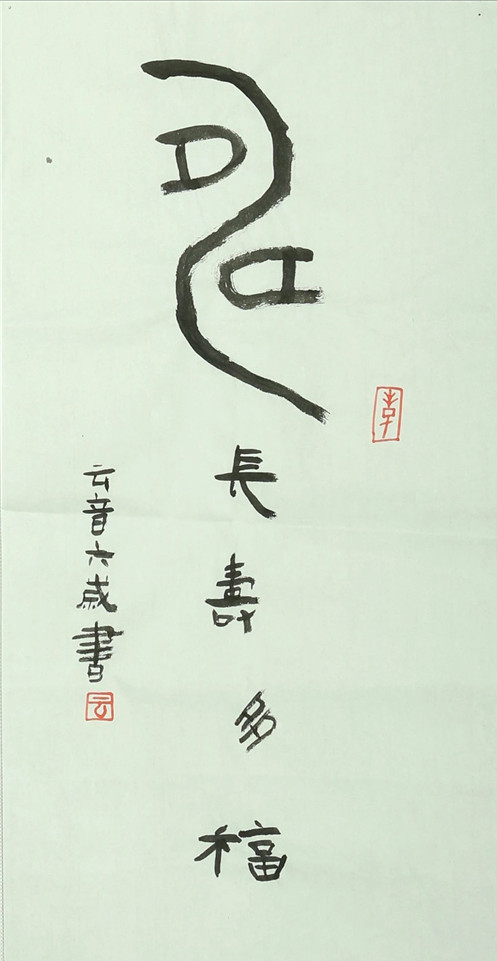 長壽多福
云音六歲書
云